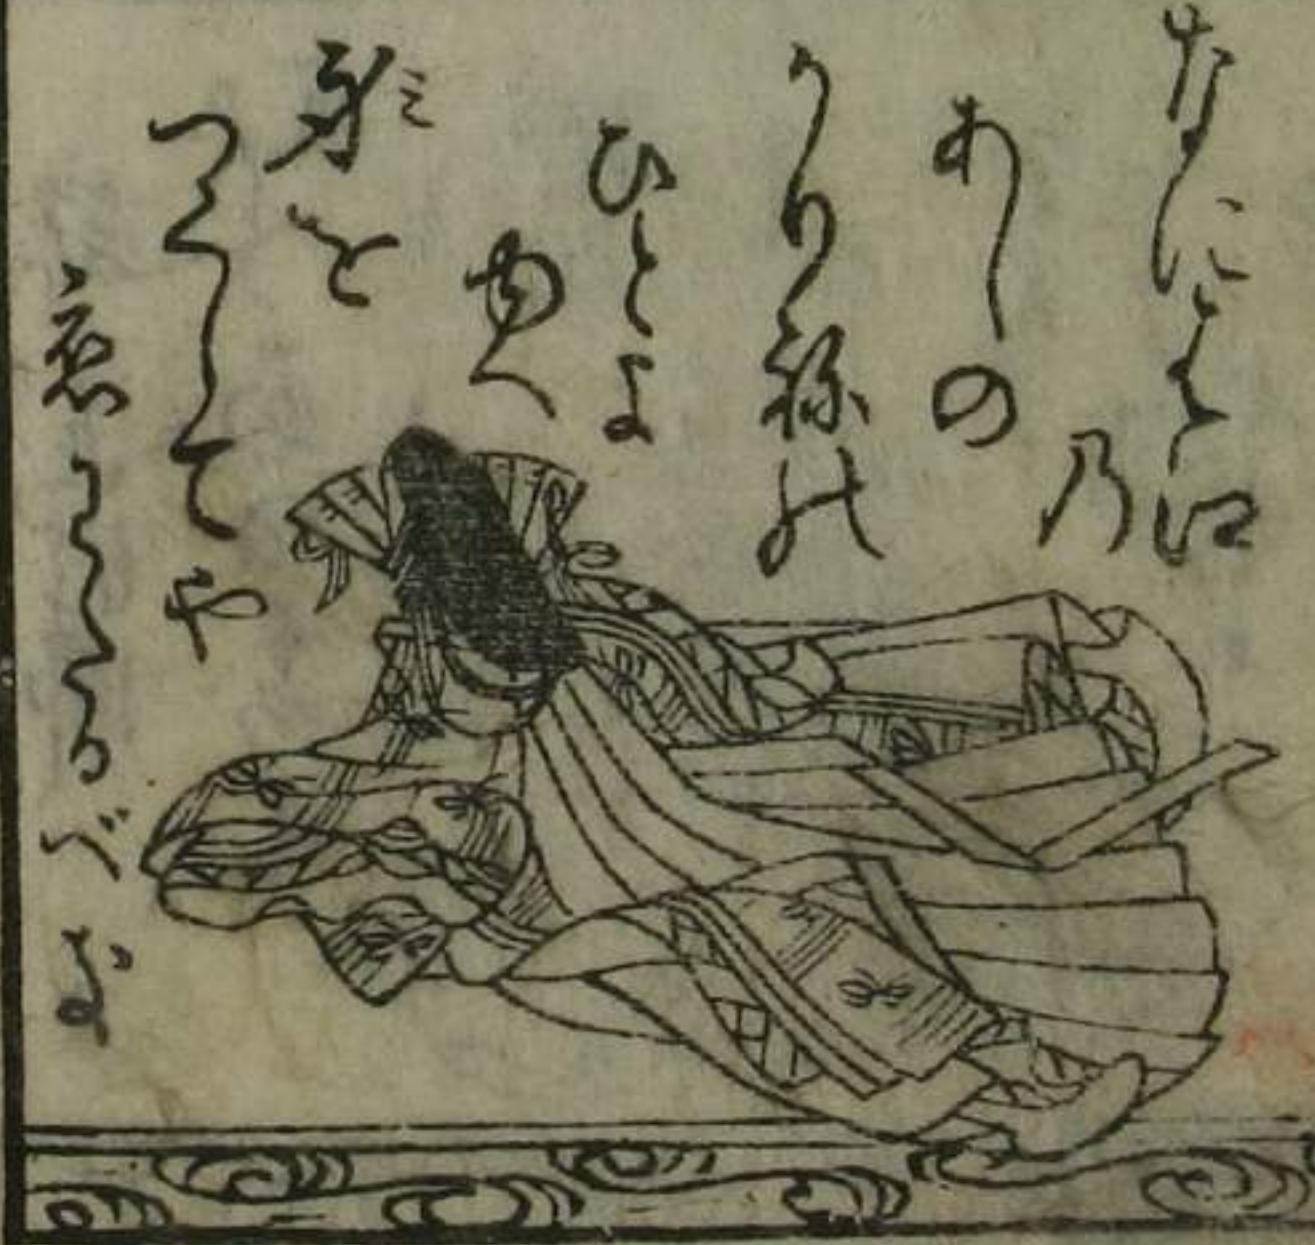 なには江
乃
あしの
かり祢の
ひとよ
ゆへ
身を
ミ
つくしてや
恋わたるべき